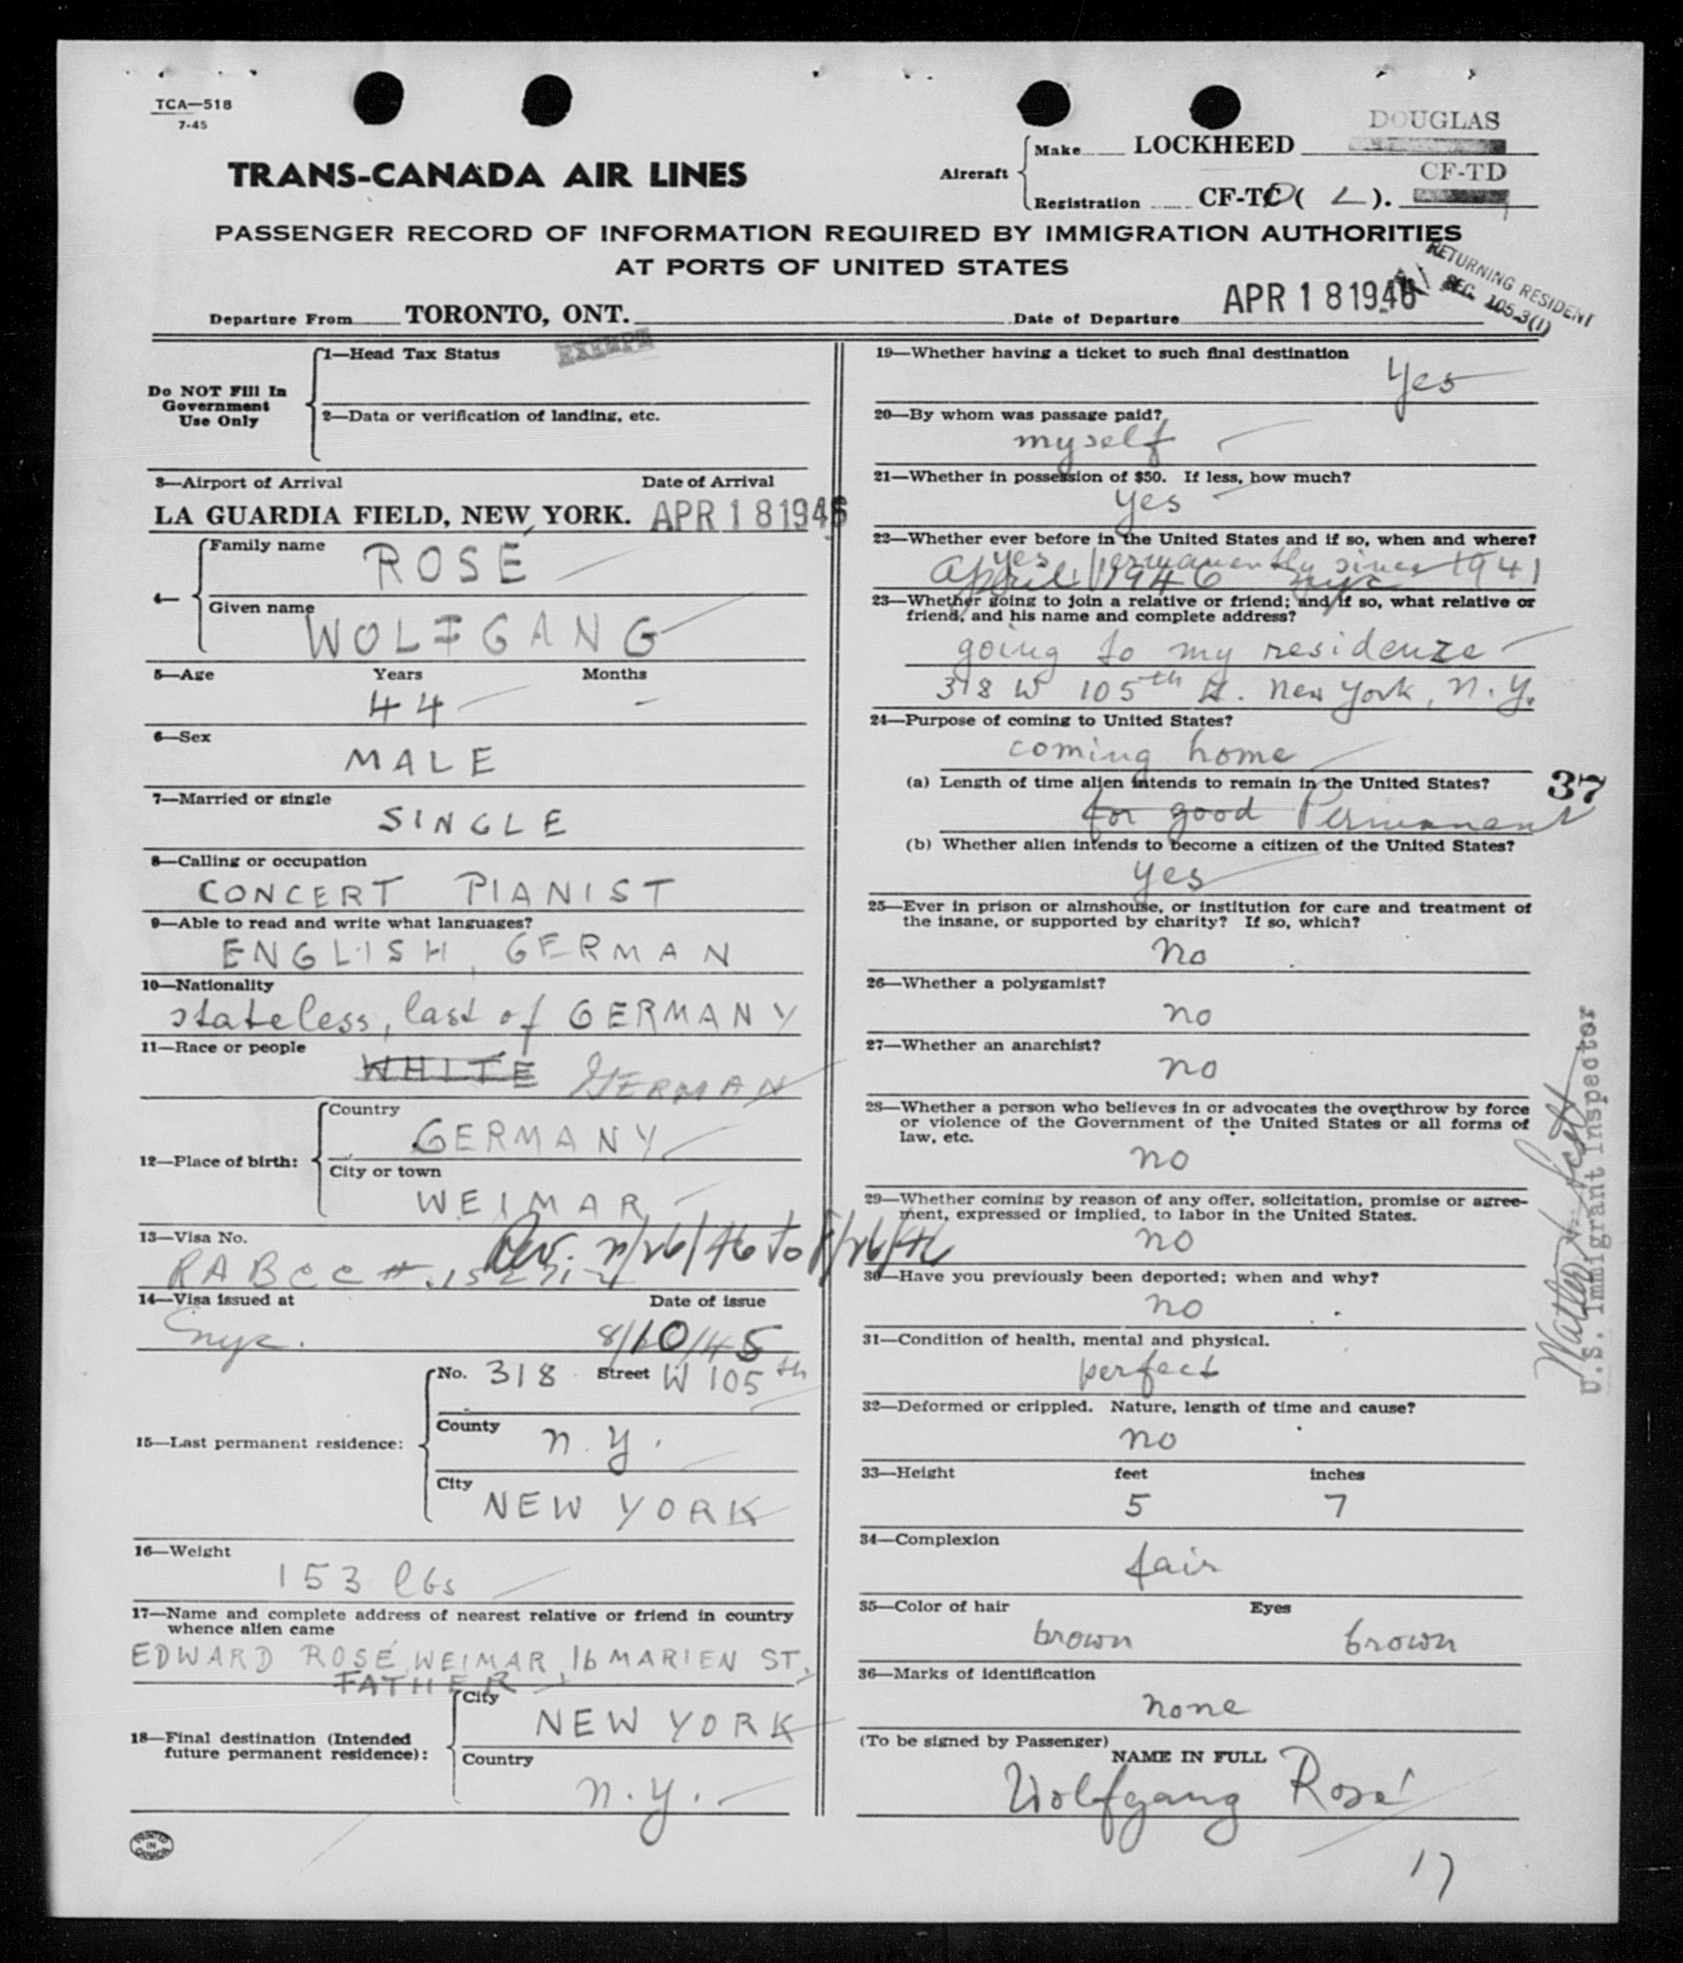 TCA—518
7-45
TRANS-CANADA AIR LINES
Aircraft
Make LOCKHEED
DOUGLAS
Registration CF-TC ( L ).
CF-TD
PASSENGER RECORD OF INFORMATION REQUIRED BY IMMIGRATION AUTHORITIES
AT PORTS OF UNITED STATES
RETURNING RESIDENT
SEC. 105.3(1)
Departure From TORONTO, ONT.
Date of Departure APR 18 1946
Do NOT Fill In
Government
Use Only
1—Head Tax Status EXEMPT
2—Data or verification of landing, etc.
3—Airport of Arrival Date of Arrival
LA GUARDIA FIELD, NEW YORK. APR 18 1946
4—
Family name ROSÉ
Given name WOLFGANG
5—Age Years Months
44 –
6—Sex
MALE
7—Married or single
SINGLE
8—Calling or occupation
CONCERT PIANIST
9—Able to read and write what languages?
ENGLISH, GERMAN
10—Nationality
stateless, last of GERMANY
11—Race or people
WHITE GERMAN
12—Place of birth:
Country
GERMANY
City or town
WEIMAR
13—Visa No.
14—Visa issued at Date of issue
8/10/45
15—Last permanent residence:
No. 318 Street W 105th
County n.y.
City
NEW YORK
16—Weight
153 lbs
17—Name and complete address of nearest relative or friend in country
whence alien came
EDWARD ROSÉ WEIMAR 16 MARIEN ST,
FATHER
18—Final destination (Intended
future permanent residence):
City
NEW YORK
Country
n.y.
PRINTED
IN
CANADA
19—Whether having a ticket to such final destination
yes
20—By whom was passage paid?
myself
21—Whether in possession of $50. If less, how much?
yes
22—Whether ever before in the United States and if so, when and where?
yes permanently since 1941
April 1946 nyc
23—Whether going to join a relative or friend; and if so, what relative or
friend, and his name and complete address?
going to my residenze
318 W 105th St. New York, N.Y.
24—Purpose of coming to United States?
coming home
(a) Length of time alien intends to remain in the United States?
37
for good Permanent
(b) Whether alien intends to become a citizen of the United States?
yes
25—Ever in prison or almshouse, or institution for care and treatment of
the insane, or supported by charity? If so, which?
no
26—Whether a polygamist?
no
27—Whether an anarchist?
no
28—Whether a person who believes in or advocates the overthrow by force
or violence of the Government of the United States or all forms of
law, etc.
no
29—Whether coming by reason of any offer, solicitation, promise or agree-
ment, expressed or implied, to labor in the United States.
no
30—Have you previously been deported; when and why?
no
31—Condition of health, mental and physical.
perfect
32—Deformed or crippled. Nature, length of time and cause?
no
33—Height feet inches
5 7
34—Complexion
fair
35—Color of hair Eyes
brown brown
36—Marks of identification
none
(To be signed by Passenger)
NAME IN FULL
Wolfgang Rosé
17
U.S. Immigrant Inspector